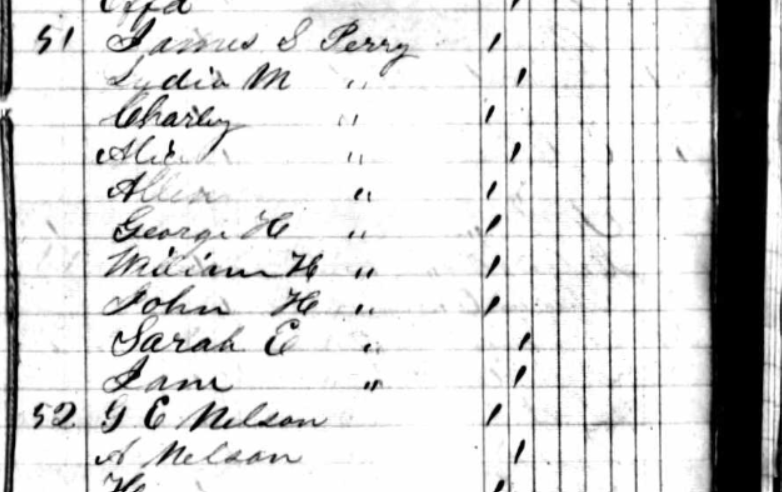 Effa
51 James S Perry /
Lydia M " /
Charley " /
Alic " /
Allen " /
George H " /
William H " /
John H " /
Sarah E " /
Jam " /
52 G E Nelson /
A Nelson /
H